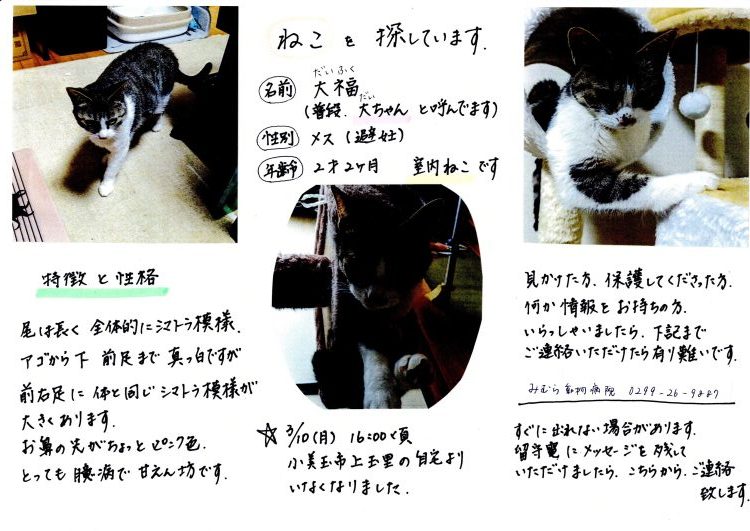 ねこを探しています.
だいふく
名前 大福
だい
(普段. 大ちゃんと呼んでます)
性別 メス(避妊)
年齢 2才2ヶ月 室内ねこです
特徴と性格
尾は長く 全体的にシマトラ模様.
アゴから下 前足まで真っ白ですが
前右足に体と同じシマトラ模様が
大きくあります.
お鼻の先がちょっとピンク色.
とっても臆病で甘えん坊です.
☆ 3/10(月) 16:00頃
小美玉市上玉里の自宅より
いなくなりました.
見かけた方. 保護してくださった方.
何か情報をお持ちの方.
いらっしゃいましたら. 下記まで
ご連絡いただけたら有り難いです.
みむら動物病院 0299-26-9887
すぐに出れない場合があります.
留守電にメッセージを残して
いただけましたら. こちらから. ご連絡
致します.